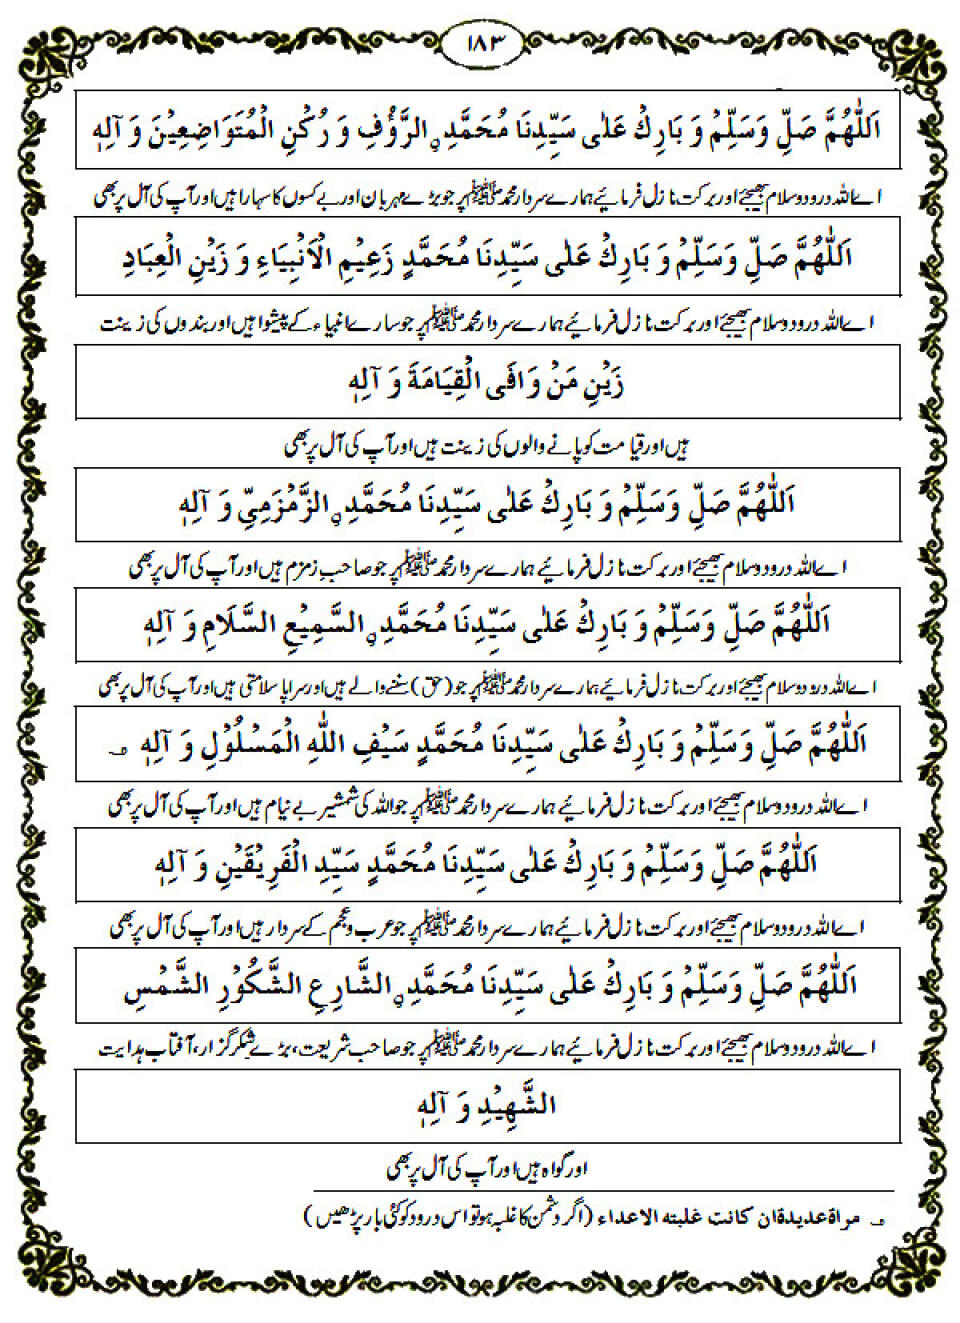 ۱۸۳
اَللّٰهُمَّ صَلِّ وَسَلِّمْ وَ بَارِكْ عَلٰى سَيِّدِنَا مُحَمَّدِ ڹ الرَّؤُفِ وَ رُكْنِ الْمُتَوَاضِعِيْنَ وَ آلِهٖ
اے اللہ درود و سلام بھیجئے اور برکت نازل فرمائیے ہمارے سردار محمد ﷺ پر جو بڑے مہربان اور بے کسوں کا سہارا ہیں اور آپ کی آل پر بھی
اَللّٰهُمَّ صَلِّ وَسَلِّمْ وَ بَارِكْ عَلٰى سَيِّدِنَا مُحَمَّدٍ زَعِيْمِ الْاَنْبِيَاءِ وَ زَيْنِ الْعِبَادِ
اے اللہ درود و سلام بھیجئے اور برکت نازل فرمائیے ہمارے سردار محمد ﷺ پر جو سارے انبیاء کے پیشوا ہیں اور بندوں کی زینت
زَيْنِ مَنْ وَافَى الْقِيَامَةَ وَ آلِهٖ
ہیں اور قیامت کو پانے والوں کی زینت ہیں اور آپ کی آل پر بھی
اَللّٰهُمَّ صَلِّ وَسَلِّمْ وَ بَارِكْ عَلٰى سَيِّدِنَا مُحَمَّدِ ڹ الزَّمْزَمِيِّ وَ آلِهٖ
اے اللہ درود و سلام بھیجئے اور برکت نازل فرمائیے ہمارے سردار محمد ﷺ پر جو صاحبِ زمزم ہیں اور آپ کی آل پر بھی
اَللّٰهُمَّ صَلِّ وَسَلِّمْ وَ بَارِكْ عَلٰى سَيِّدِنَا مُحَمَّدِ ڹ السَّمِيْعِ السَّلَامِ وَ آلِهٖ
اے اللہ درود و سلام بھیجئے اور برکت نازل فرمائیے ہمارے سردار محمد ﷺ پر جو (حق) سننے والے ہیں اور سراپا سلامتی ہیں اور آپ کی آل پر بھی
اَللّٰهُمَّ صَلِّ وَسَلِّمْ وَ بَارِكْ عَلٰى سَيِّدِنَا مُحَمَّدٍ سَيْفِ اللّٰهِ الْمَسْلُوْلِ وَ آلِهٖ ؎
اے اللہ درود و سلام بھیجئے اور برکت نازل فرمائیے ہمارے سردار محمد ﷺ پر جو اللہ کی شمشیر بے نیام ہیں اور آپ کی آل پر بھی
اَللّٰهُمَّ صَلِّ وَسَلِّمْ وَ بَارِكْ عَلٰى سَيِّدِنَا مُحَمَّدٍ سَيِّدِ الْفَرِيْقَيْنِ وَ آلِهٖ
اے اللہ درود و سلام بھیجئے اور برکت نازل فرمائیے ہمارے سردار محمد ﷺ پر جو عرب و عجم کے سردار ہیں اور آپ کی آل پر بھی
اَللّٰهُمَّ صَلِّ وَسَلِّمْ وَ بَارِكْ عَلٰى سَيِّدِنَا مُحَمَّدِ ڹ الشَّارِعِ الشَّكُوْرِ الشَّمْسِ
اے اللہ درود و سلام بھیجئے اور برکت نازل فرمائیے ہمارے سردار محمد ﷺ پر جو صاحب شریعت، بڑے شکر گزار، آفتاب ہدایت
الشَّهِيْدِ وَ آلِهٖ
اور گواہ ہیں اور آپ کی آل پر بھی
؎ مراة عديدة ان كانت غلبته الاعداء (اگر دشمن کا غلبہ ہو تو اس درود کو کئی بار پڑھیں)